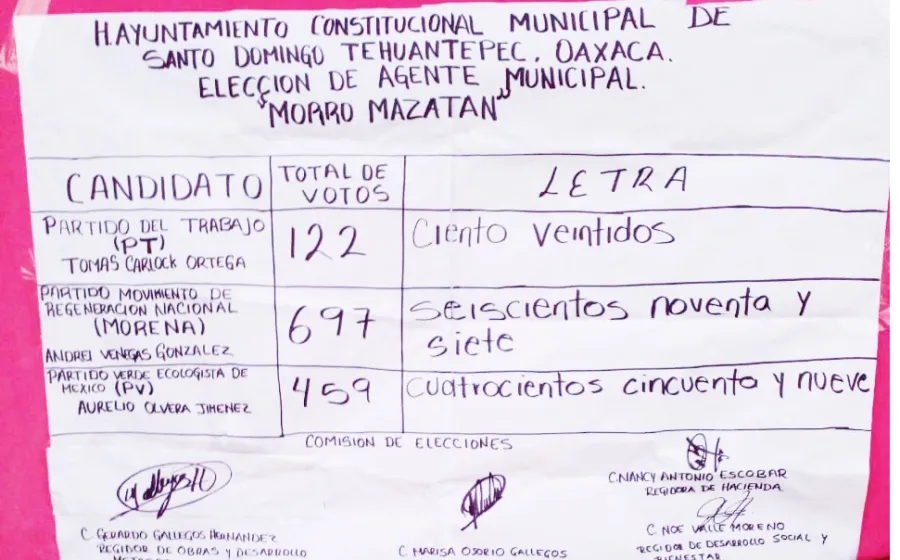 H.AYUNTAMIENTO CONSTITUCIONAL MUNICIPAL DE
SANTO DOMINGO TEHUANTEPEC, OAXACA.
ELECCION DE AGENTE MUNICIPAL.
"MORRO MAZATAN"
CANDIDATO
TOTAL DE
VOTOS
LETRA
PARTIDO DEL TRABAJO
(PT)
TOMAS CARLOCK ORTEGA
122
Ciento veintidos
PARTIDO MOVIMIENTO DE
REGENERACION NACIONAL
(MORENA)
ANDREI VENEGAS GONZALEZ
697
seiscientos noventa y
siete
PARTIDO VERDE ECOLOGISTA DE
MEXICO (PV)
AURELIO OLVERA JIMENEZ
459
cuatrocientos cincuenta y nueve
COMISION DE ELECCIONES
C.NANCY ANTONIO ESCOBAR
REGIDORA DE HACIENDA
C. GERARDO GALLEGOS HERNANDEZ
REGIDOR DE OBRAS Y DESARROLLO
C MARISA OSORIO GALLEGOS
C. NOE VALLE MORENO
REGIDOR DE DESARROLLO SOCIAL Y
BIENESTAR